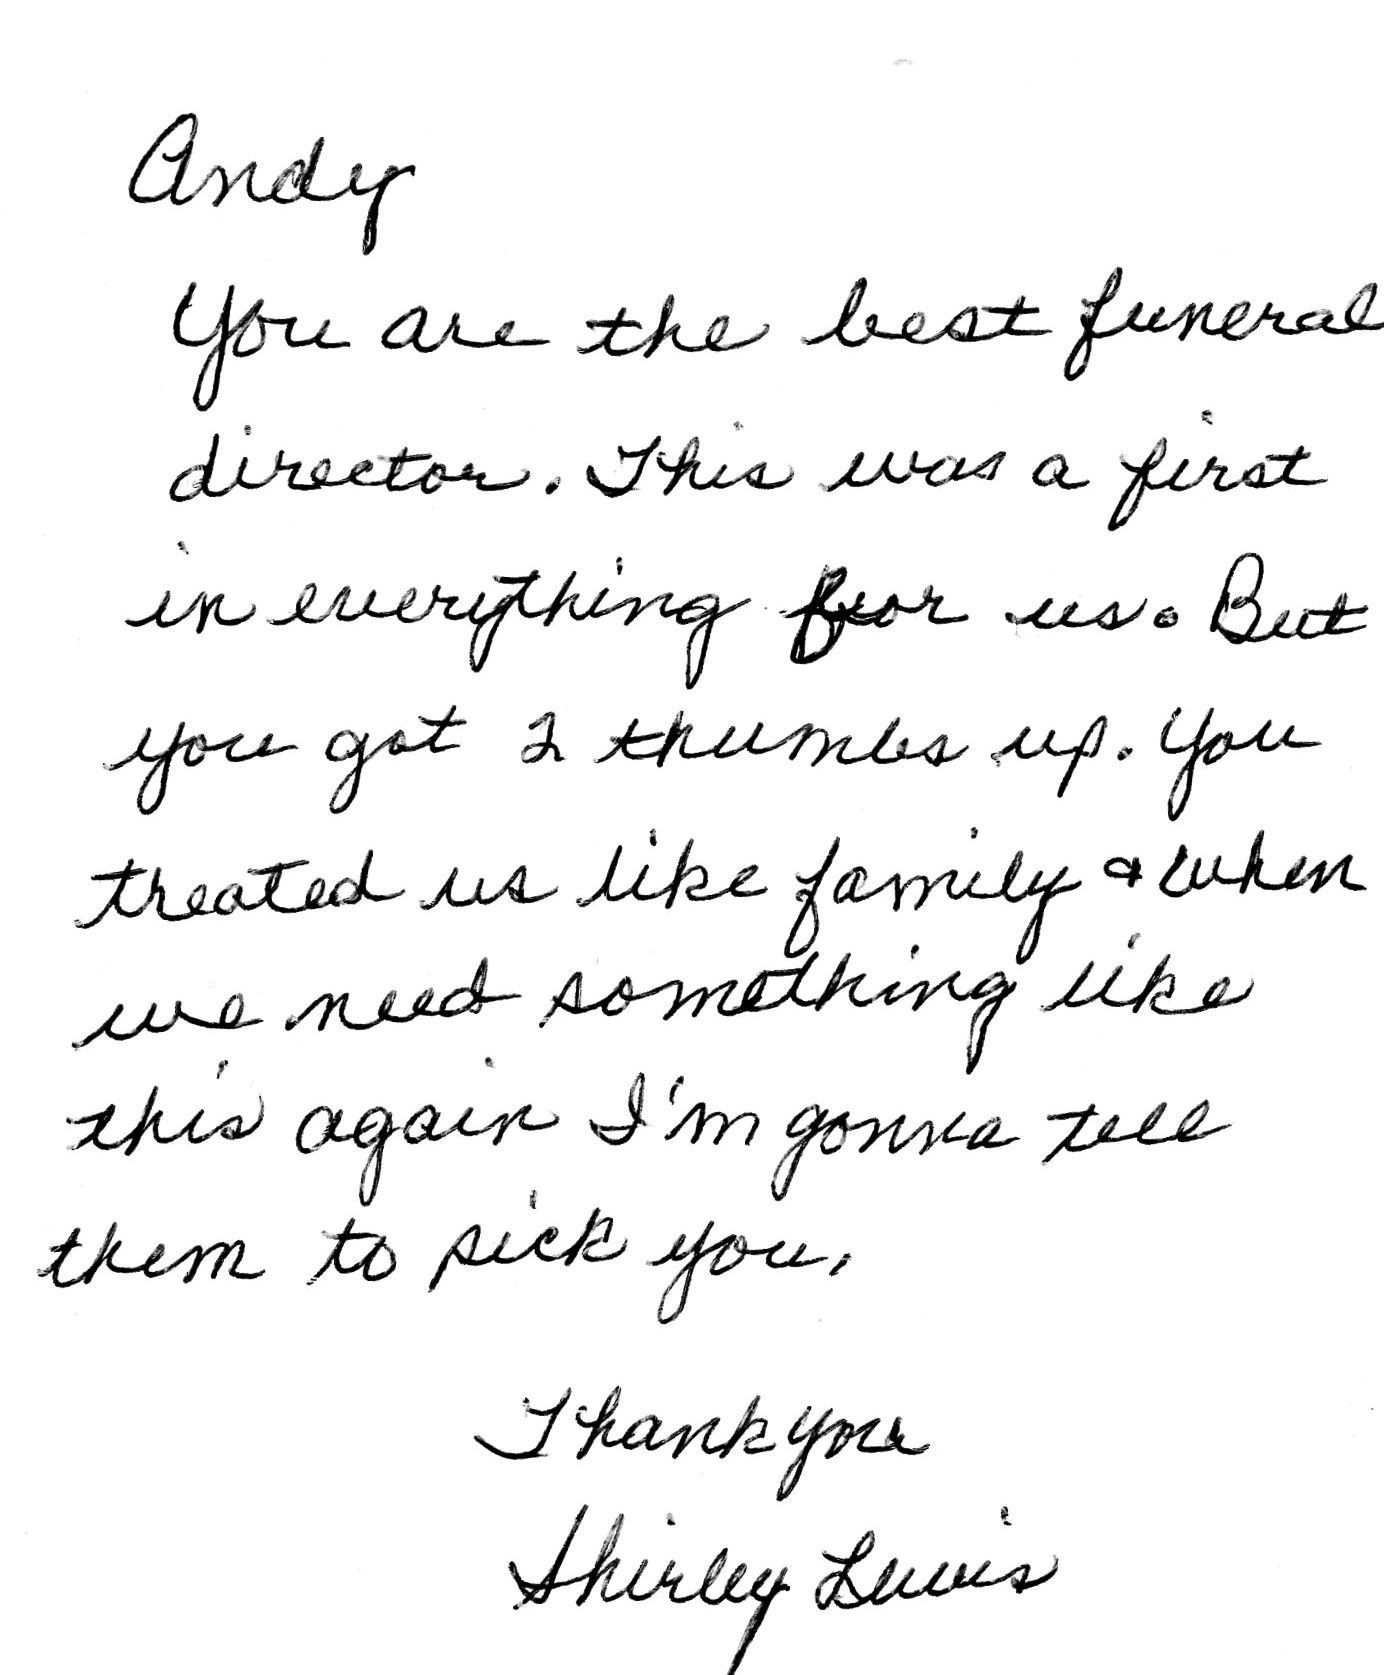 Andy
You are the best funeral
director. This was a first
in everything for us. But
you got 2 thumbs up. You
treated us like family & when
we need something like
this again I'm gonna tell
them to pick you.
Thank you
Shirley Lewis